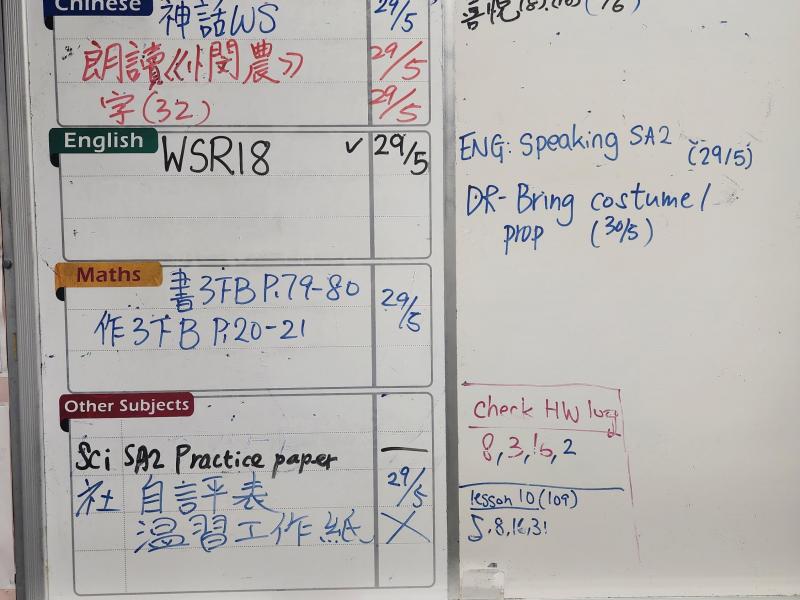 Chinese
神話WS 29/5
朗讀《憫農》 29/5
字(32) 29/5
English
WSR18 ✓ 29/5
Maths
書3下B P.79-80 29/5
作3下B P.20-21
Other Subjects
Sci SA2 Practice paper —
社 自評表 29/5
温習工作紙 ×
ENG: Speaking SA2 (29/5)
DR- Bring costume/
prop (30/5)
check HW
8, 3, 16, 2
lesson 10 (109)